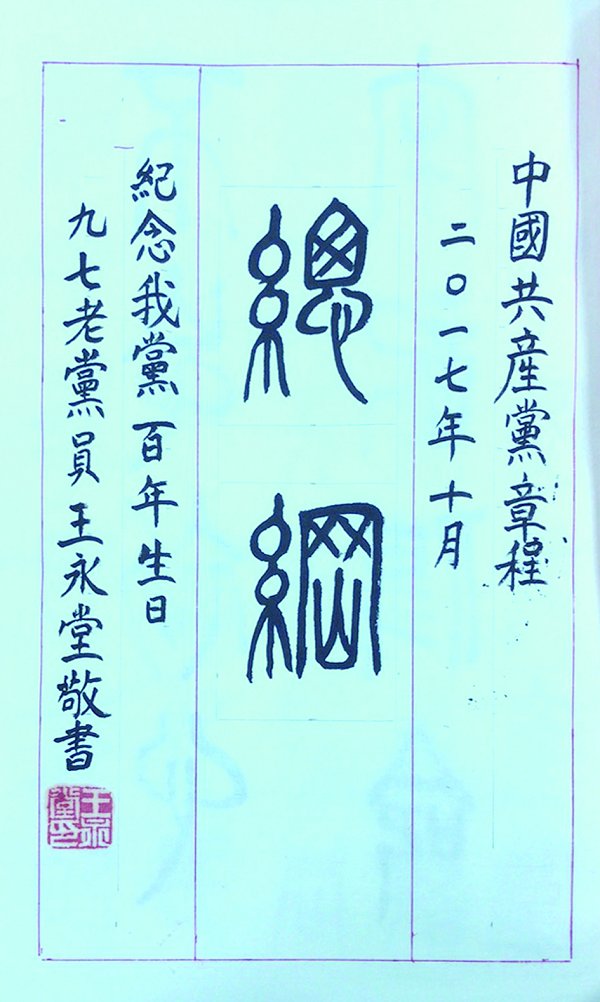 中國共産黨章程
二〇一七年十月
總綱
紀念我黨百年生日
九七老黨員王永堂敬書
王永堂印